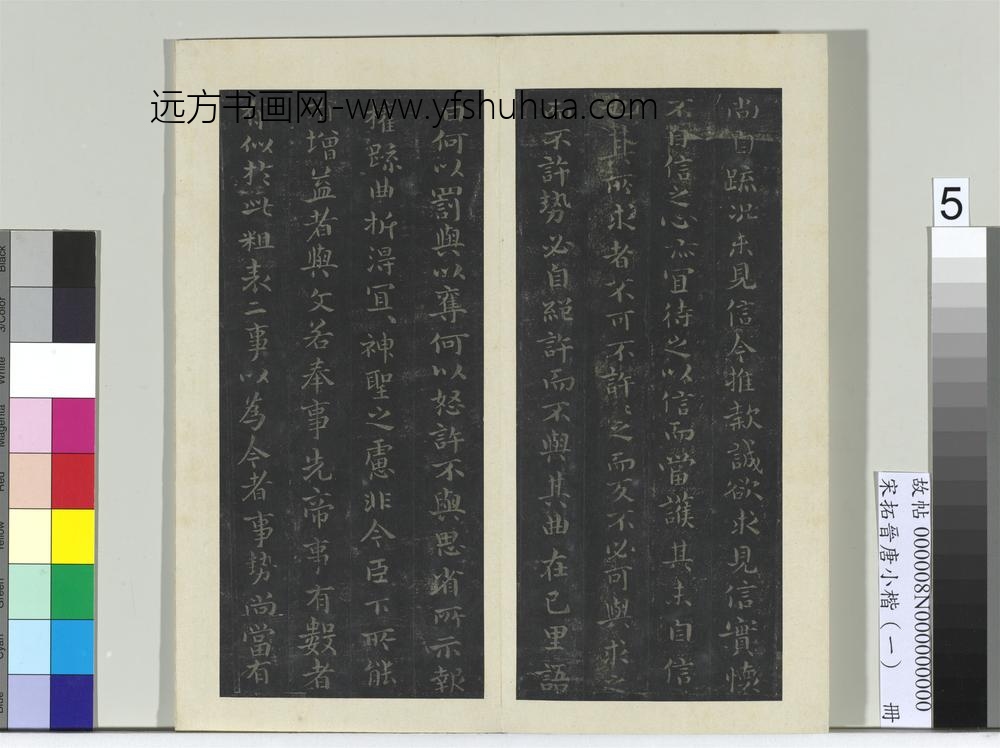 远方书画网-www.yfshuhua.com
尚自疏況未見信今推款誠欲求見信實懷
不自信之心亦宜待之以信而當護其未自信
也其所求者不可不許許之而反不必可與求之
而不許勢必自絕許而不與其曲在己里語
曰何以罰與以奪何以怒許不與思省所示報
權疏曲折得宜宜神聖之慮非今臣下所能
有增益昔與文若奉事先帝事有數者
有似於此粗表二事以為今者事勢尚當有
5
故帖000008N000000000
宋拓晉唐小楷（一） 冊
Black
3/Color
White
Magenta
Red
Yellow
Green
Cyan
Blue